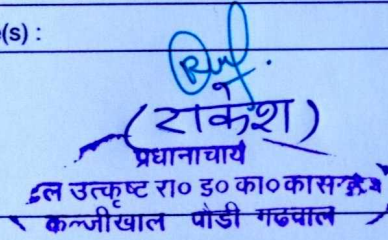 (s) :
(राकेश)
प्रधानाचार्य
उत्कृष्ट रा० इ० का०
कल्जीखाल पौडी गढवाल